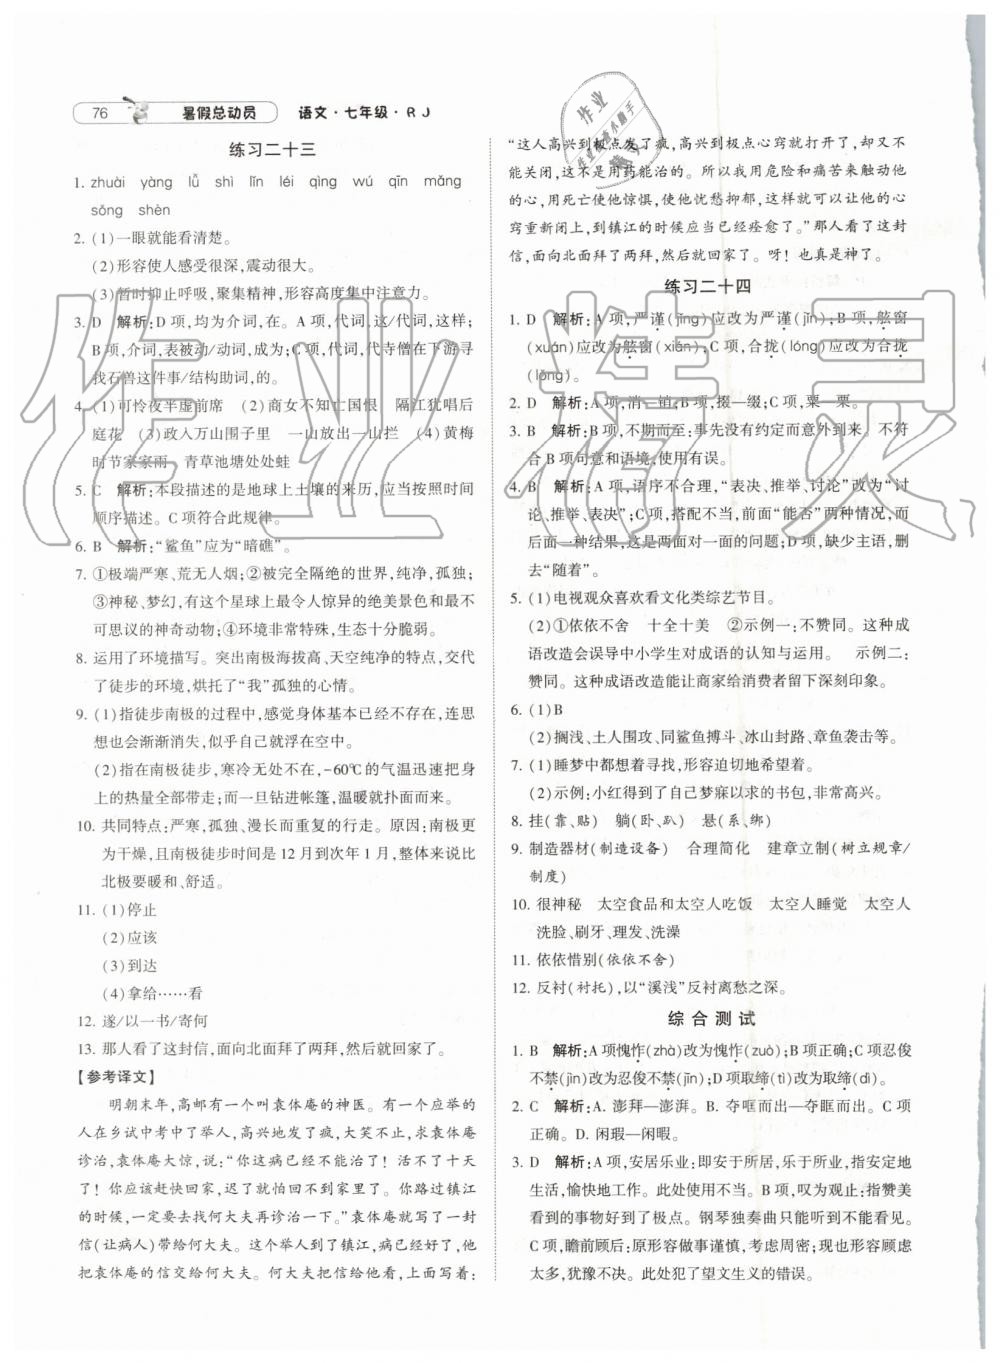 76 暑假总动员 语文·七年级·RJ
练习二十三
1. zhuài yàng lǚ shì lǐn léi qìng wú qīn mǎng
sǒng shèn
2. (1)一眼就能看清楚。
(2)形容使人感受很深,震动很大。
(3)暂时抑止呼吸,聚集精神,形容高度集中注意力。
3. D 解析:D项,均为介词,在。A项,代词,这/代词,这样;
B项,介词,表被动/动词,成为;C项,代词,代寺僧在下游寻
找石兽这件事/结构助词,的。
4. (1)可怜夜半虚前席 (2)商女不知亡国恨 隔江犹唱后
庭花 (3)政入万山围子里 一山放出一山拦 (4)黄梅
时节家家雨 青草池塘处处蛙
5. C 解析:本段描述的是地球上土壤的来历,应当按照时间
顺序描述。C项符合此规律。
6. B 解析:“鲨鱼”应为“暗礁”。
7. ①极端严寒、荒无人烟;②被完全隔绝的世界,纯净,孤独;
③神秘、梦幻,有这个星球上最令人惊异的绝美景色和最不
可思议的神奇动物;④环境非常特殊,生态十分脆弱。
8. 运用了环境描写。突出南极海拔高、天空纯净的特点,交代
了徒步的环境,烘托了“我”孤独的心情。
9. (1)指徒步南极的过程中,感觉身体基本已经不存在,连思
想也会渐渐消失,似乎自己就浮在空中。
(2)指在南极徒步,寒冷无处不在,-60℃的气温迅速把身
上的热量全部带走;而一旦钻进帐篷,温暖就扑面而来。
10. 共同特点:严寒,孤独、漫长而重复的行走。原因:南极更
为干燥,且南极徒步时间是12月到次年1月,整体来说比
北极要暖和、舒适。
11. (1)停止
(2)应该
(3)到达
(4)拿给……看
12. 遂/以一书/寄何
13. 那人看了这封信,面向北面拜了两拜,然后就回家了。
【参考译文】
明朝末年,高邮有一个叫袁体庵的神医。有一个应举的
人在乡试中考中了举人,高兴地发了疯,大笑不止,求袁体庵
诊治,袁体庵大惊,说:“你这病已经不能治了!活不了十天
了!你应该赶快回家,迟了就怕回不到家里了。你路过镇江
的时候,一定要去找何大夫再诊治一下。”袁体庵写了一封
信(让病人)带给何大夫。这个人到了镇江,病已经好了,他
把袁体庵的信交给何大夫。何大夫把信给他看,上面写着:
“这人高兴到极点发了疯,高兴到极点心窍就打开了,不
能关闭,这不是用药能治的。所以我用危险和痛苦来触动他
的心,用死亡使他惊惧,使他忧愁抑郁,这样就可以让他的心
窍重新闭上,到镇江的时候应当已经痊愈了。”那人看了这封
信,面向北面拜了两拜,然后就回家了。呀!也真是神了。
练习二十四
1. D 解析:A项,严谨(jǐng)应改为严谨(jǐn);B项,舷窗
(xuán)应改为舷窗(xián);C项,合拢(lóng)应改为合拢
(lǒng)。
2. D 解析:A项,消—销;B项,掇—缀;C项,粟—栗。
3. B 解析:B项,不期而至:事先没有约定而意外到来。不符
合B项句意和语境,使用有误。
4. B 解析:A项,语序不合理,“表决、推举、讨论”改为“讨
论、推举、表决”;C项,搭配不当,前面“能否”两种情况,而
后面一种结果,这是两面对一面的问题;D项,缺少主语,删
去“随着”。
5. (1)电视观众喜欢看文化类综艺节目。
(2)①依依不舍 十全十美 ②示例一:不赞同。这种成
语改造会误导中小学生对成语的认知与运用。 示例二:
赞同。这种成语改造能让商家给消费者留下深刻印象。
6. (1)B
(2)搁浅、土人围攻、同鲨鱼搏斗、冰山封路、章鱼袭击等。
7. (1)睡梦中都想着寻找,形容迫切地希望着。
(2)示例:小红得到了自己梦寐以求的书包,非常高兴。
8. 挂(靠、贴) 躺(卧、趴) 悬(系、绑)
9. 制造器材(制造设备) 合理简化 建章立制(树立规章/
制度)
10. 很神秘 太空食品和太空人吃饭 太空人睡觉 太空人
洗脸、刷牙、理发、洗澡
11. 依依惜别(依依不舍)
12. 反衬(衬托),以“溪浅”反衬离愁之深。
综合测试
1. B 解析:A项愧怍(zhà)改为愧怍(zuò);B项正确;C项忍俊
不禁(jìn)改为忍俊不禁(jīn);D项取缔(tì)改为取缔(dì)。
2. C 解析:A. 澎拜—澎湃。B. 夺哐而出—夺眶而出。C项
正确。D. 闲瑕—闲暇。
3. D 解析:A项,安居乐业:即安于所居,乐于所业,指安定地
生活,愉快地工作。此处使用不当。B项,叹为观止:指赞美
看到的事物好到了极点。钢琴独奏曲只能听到不能看到。
C项,瞻前顾后:原形容做事谨慎,考虑周密;现也形容顾虑
太多,犹豫不决。此处犯了望文生义的错误。
作业精灵